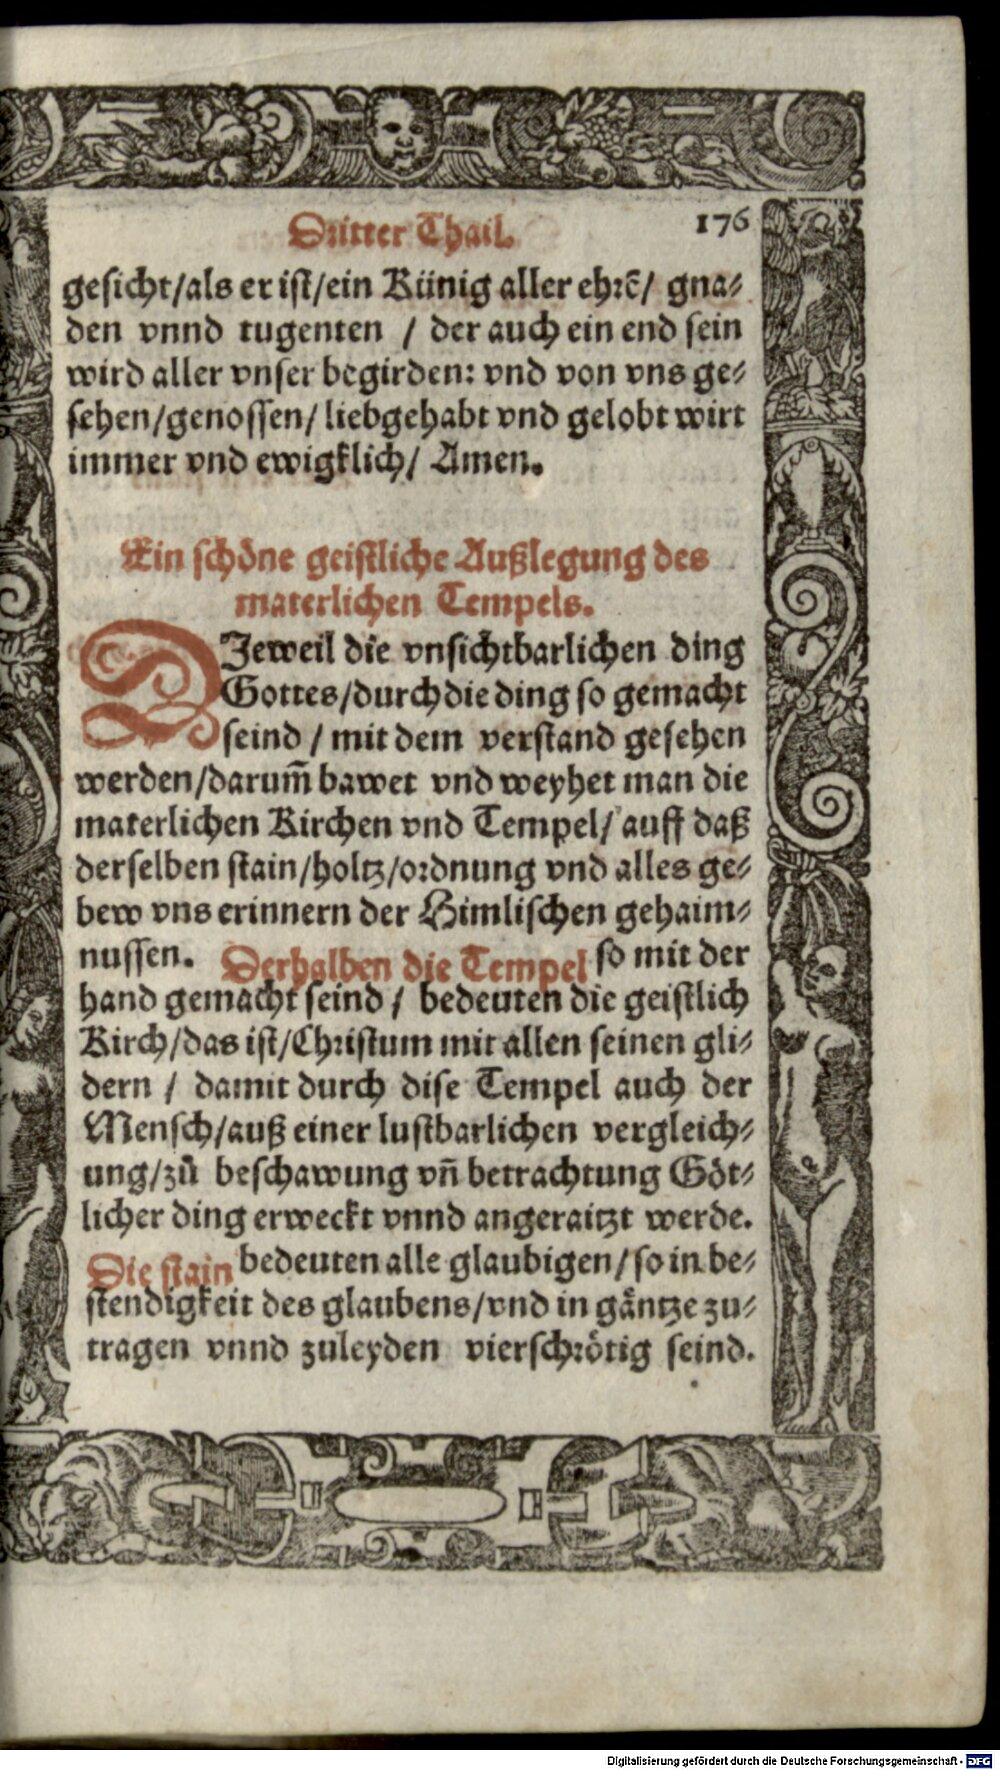 Dritter Thail. 176
gesicht/als er ist/ein Künig aller ehrē/ gna-
den vnnd tugenten / der auch ein end sein
wird aller vnser begirden: vnd von vns ge-
sehen/genossen/ liebgehabt vnd gelobt wirt
immer vnd ewigklich/ Amen.
Ein schöne geistliche Außlegung des
materlichen Tempels.
DJeweil die vnsichtbarlichen ding
Gottes/durch die ding so gemacht
seind / mit dem verstand gesehen
werden/darum̄ bawet vnd weyhet man die
materlichen Kirchen vnd Tempel/ auff daß
derselben stain/holtz/ordnung vnd alles ge-
bew vns erinnern der Himlischen gehaim-
nussen. Derhalben die Tempel so mit der
hand gemacht seind / bedeuten die geistlich
Kirch/das ist/Christum mit allen seinen gli-
dern / damit durch dise Tempel auch der
Mensch/auß einer lustbarlichen vergleich-
ung/zů beschawung vn̄ betrachtung Göt-
licher ding erweckt vnnd angeraitzt werde.
Die stain bedeuten alle glaubigen/so in be-
stendigkeit des glaubens/vnd in gäntze zu-
tragen vnnd zuleyden vierschrötig seind.
Digitalisierung gefördert durch die Deutsche Forschungsgemeinschaft - DFG